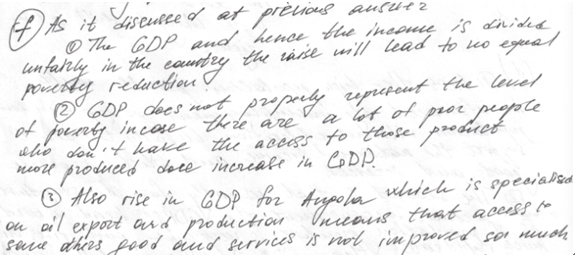 f) As it discussed at previous answer
① The GDP and hence the income is divided
unfairly in the country the raise will lead to no equal
poverty reduction.
② GDP does not properly represent the level
of poverty incase there are a lot of poor people
who don't have the access to those product
more produced due increase in GDP.
③ Also rise in GDP for Angola which is specialised
on oil export and production means that access to
some others good and services is not improved so much